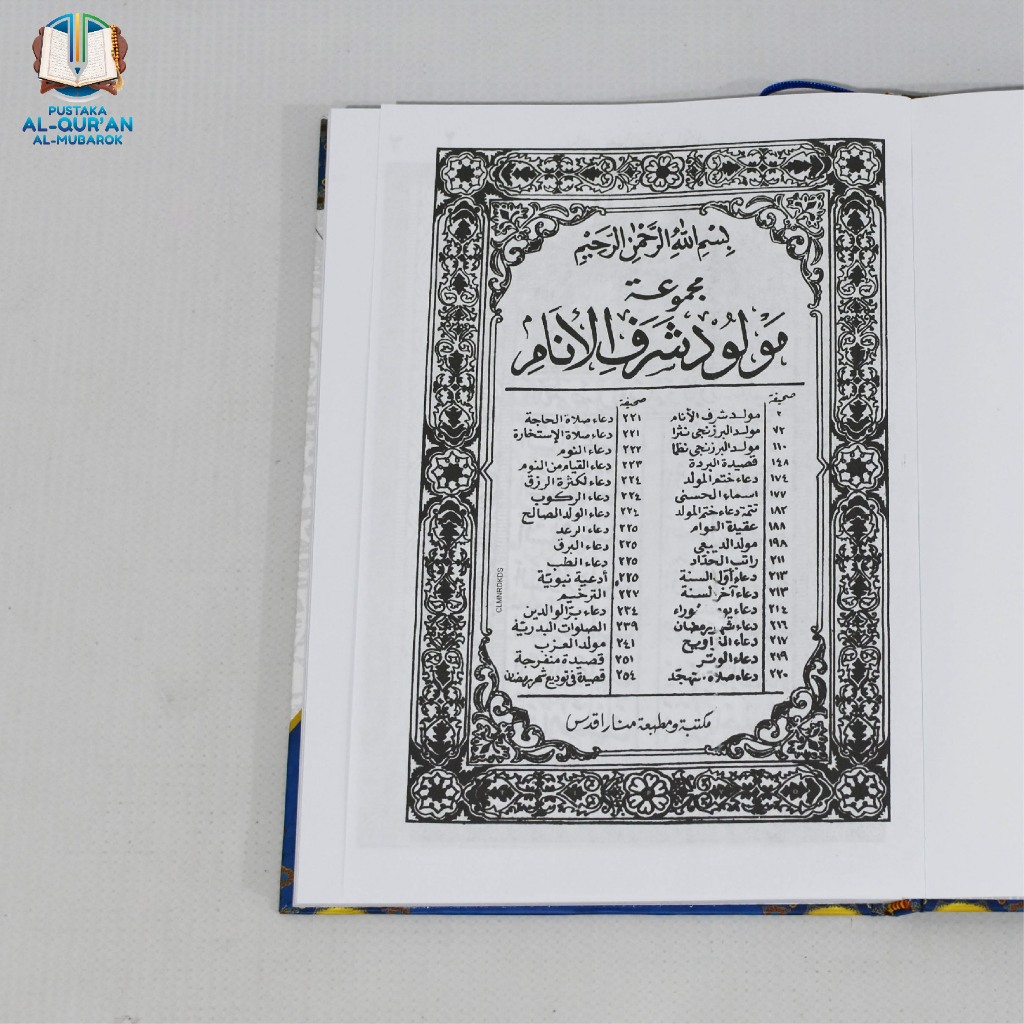 PUSTAKA
AL-QUR'AN
AL-MUBAROK
بِسْمِ اللهِ الرَّحْمٰنِ الرَّحِيْمِ
مجموعة
مَوْلُوْدُ شَرَفِ الْأَنَامِ
صحيفة
٢ مولد شرف الأنام
٧٢ مولد البرزنجى نثرا
١١٠ مولد البرزنجى نظما
١٤٨ قصيدة البردة
١٧٤ دعاء ختم المولد
١٧٧ اسماء الحسنى
١٨٢ تتمة دعاء ختم المولد
١٨٨ عقيدة العوام
١٩٨ مولد الديبعى
٢١١ راتب الحدّاد
٢١٣ دعاء أوّل السنة
٢١٣ دعاء آخر لسنة
٢١٤ دعاء
٢١٦ دعاء شهر رمضان
٢١٧ دعاء
٢١٩ دعاء الوتر
٢٢٠ دعاء صلاة
صحيفة
٢٢١ دعاء صلاة الحاجة
٢٢١ دعاء صلاة الإستخارة
٢٢٢ دعاء النوم
٢٢٣ دعاء القيام من النوم
٢٢٤ دعاء لكثرة الرزق
٢٢٤ دعاء الركوب
٢٢٤ دعاء الولد الصالح
٢٢٥ دعاء الرعد
٢٢٥ دعاء البرق
٢٢٥ دعاء الطب
٢٢٥ أدعية نبويّة
٢٢٧ الترحيم
٢٣٤ دعاء برّ الوالدين
٢٣٩ الصلوات البدريّة
٢٤١ مولد العزب
٢٥١ قصيدة منفرجة
٢٥٤ قصيدة فى توديع شهر رمضان
CLMNRDKDS
مكتبة ومطبعة منارا قدس